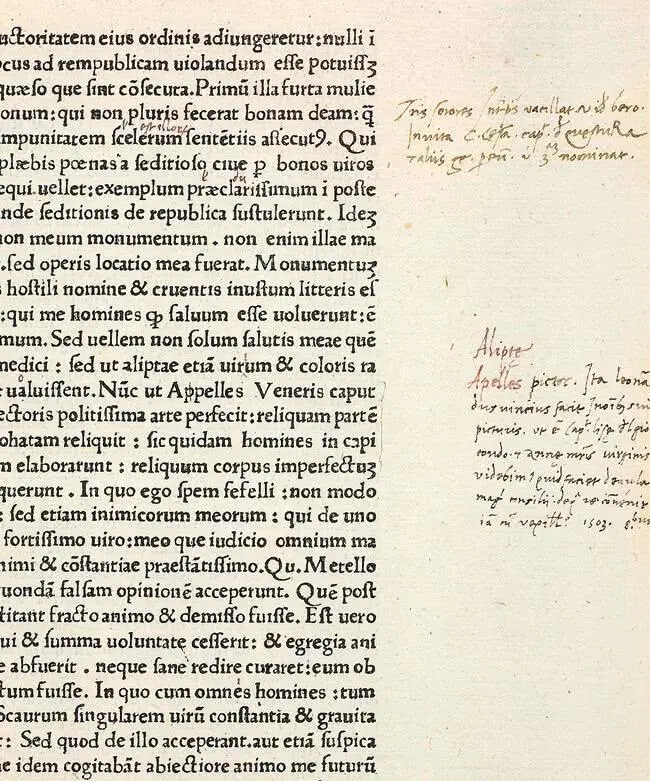 uctoritatem eius ordinis adiungeretur:nulli ī
ocus ad rempublicam uiolandum esse potuissꝫ
quæso que sint cōsecuta.Primū illa furta mulie
onum:qui non pluris fecerat bonam deam:q̄
impunitatem scelerum sentētiis assecutꝰ. Qui
plæbis pœnas a seditioso ciue ꝑ bonos uiros
equi uellet:exemplum præclarissimum i poste
nde seditionis de republica sustulerunt. Ideꝫ
non meum monumentum . non enim illae ma
.sed operis locatio mea fuerat. Monumentuꝫ
s hostili nomine & cruentis inustum litteris es
:qui me homines ꝙ saluum esse uoluerunt:ē
mum. Sed uellem non solum salutis meae quē
medici : sed ut aliptae etiā uirum & coloris ra
e ualuissent. Nūc ut Appelles Veneris caput
ectoris politissima arte perfecit:reliquam partē
ohatam reliquit : sic quidam homines in capi
m elaborarunt : reliquum corpus imperfectuꝫ
querunt . In quo ego spem fefelli :non modo
: sed etiam inimicorum meorum : qui de uno
fortissimo uiro:meo que iudicio omnium ma
nimi & cōstantiae praestātissimo.Qu.Metello
uondā falsam opinionē acceperunt. Quē post
titant fracto animo & demisso fuisse. Est uero
qui & summa uoluntate cesserit: & egregia ani
e abfuerit . neque sane redire curaret:eum ob
tum fuisse. In quo cum omnes homines :tum
Scaurum singularem uirū constantia & grauita
t: Sed quod de illo acceperant.aut etiā suspica
ne idem cogitabāt abiectiore animo me futurū
Tris sorores
nominat.
Alipte
Apelles pictor. Ita Leonar
dus vincius facit in oībus suis
picturis. ut ē Cap. lise del gio
condo. & anne mr̄is virginis
videbim⁹ quid faciet de aula
magⁱ consilii. de qᵃ re cōuenit
iā cū vexillⁱ. 1503. 8bris